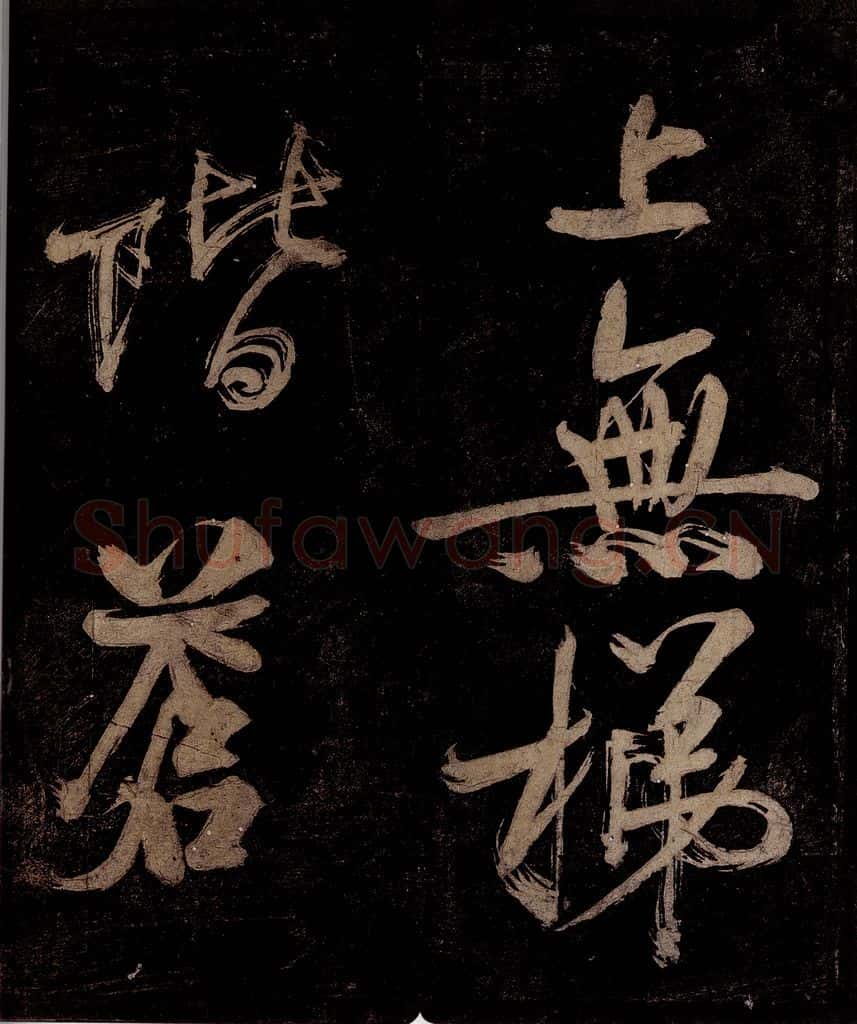 上無梯
階蒼
Shufawang.CN